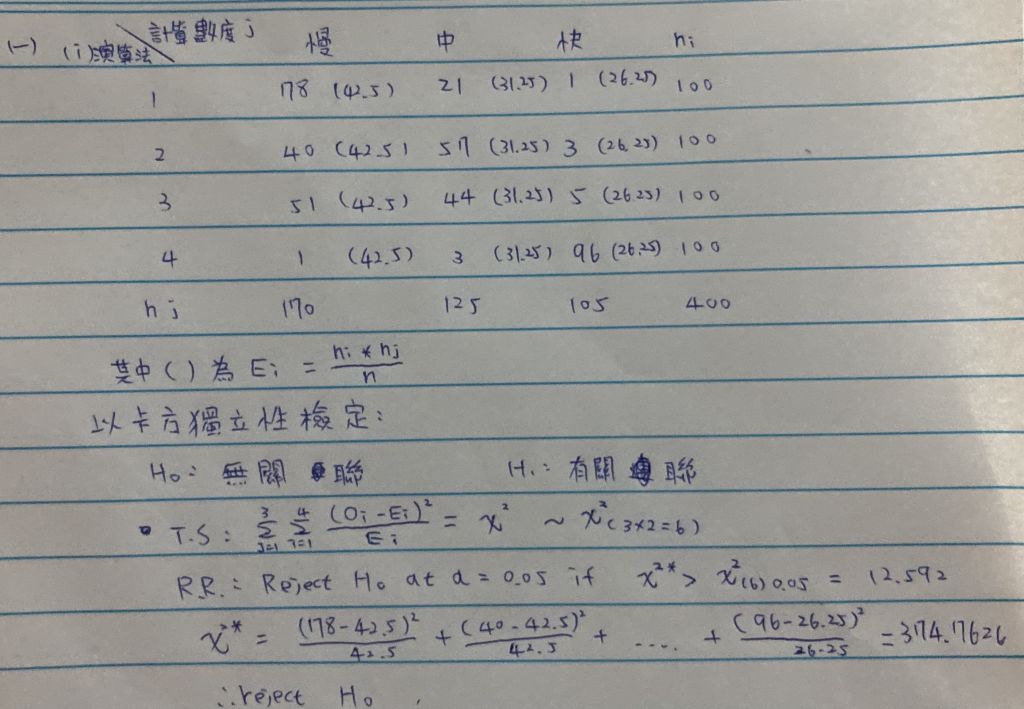 (一) (i)演算法 計算數度 j 慢 中 快 ni
1 178 (42.5) 21 (31.25) 1 (26.25) 100
2 40 (42.5) 57 (31.25) 3 (26.25) 100
3 51 (42.5) 44 (31.25) 5 (26.25) 100
4 1 (42.5) 3 (31.25) 96 (26.25) 100
nj 170 125 105 400
其中( )為 Ei = ni * nj / n
以卡方獨立性檢定:
H0: 無關聯 H1: 有關聯
T.S: Σ j=1 3 Σ i=1 4 (Oi - Ei)² / Ei = χ² ~ χ²(3×2=6)
R.R.: Reject H0 at α = 0.05 if χ²* > χ²(6)0.05 = 12.592
χ²* = (178-42.5)² / 42.5 + (40-42.5)² / 42.5 + ..... + (96-26.25)² / 26.25 = 374.7626
∴reject H0.